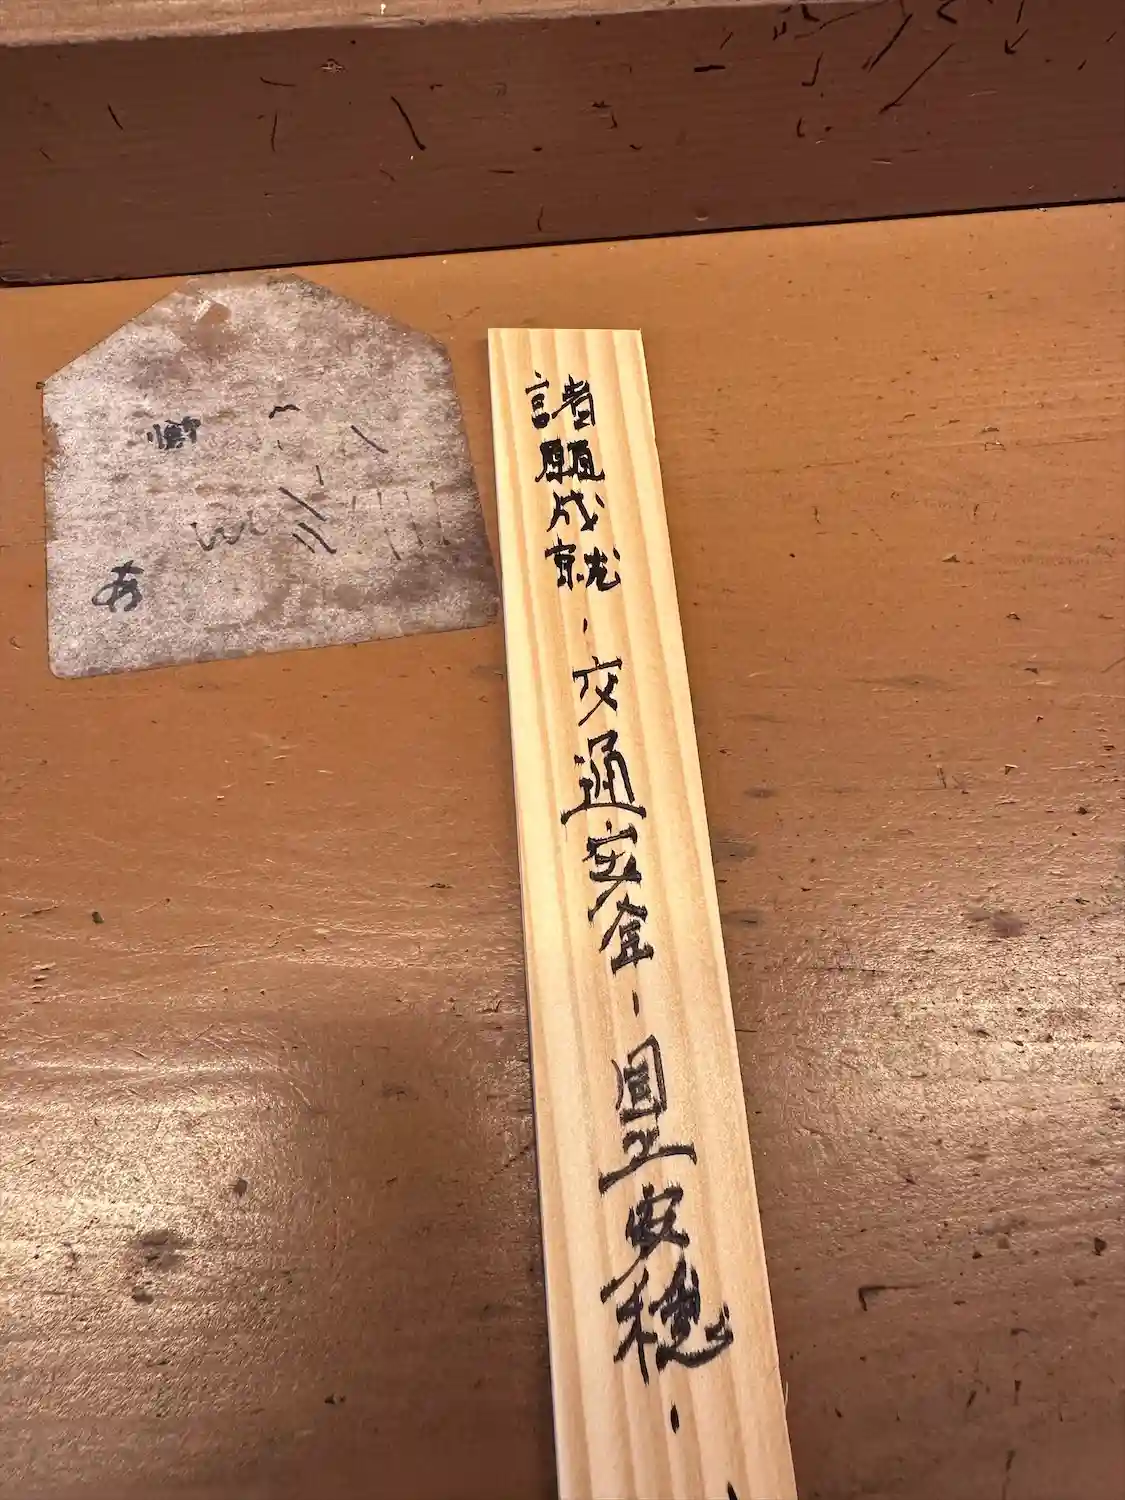 諸願成就-交通安全-国土安穏-
あ